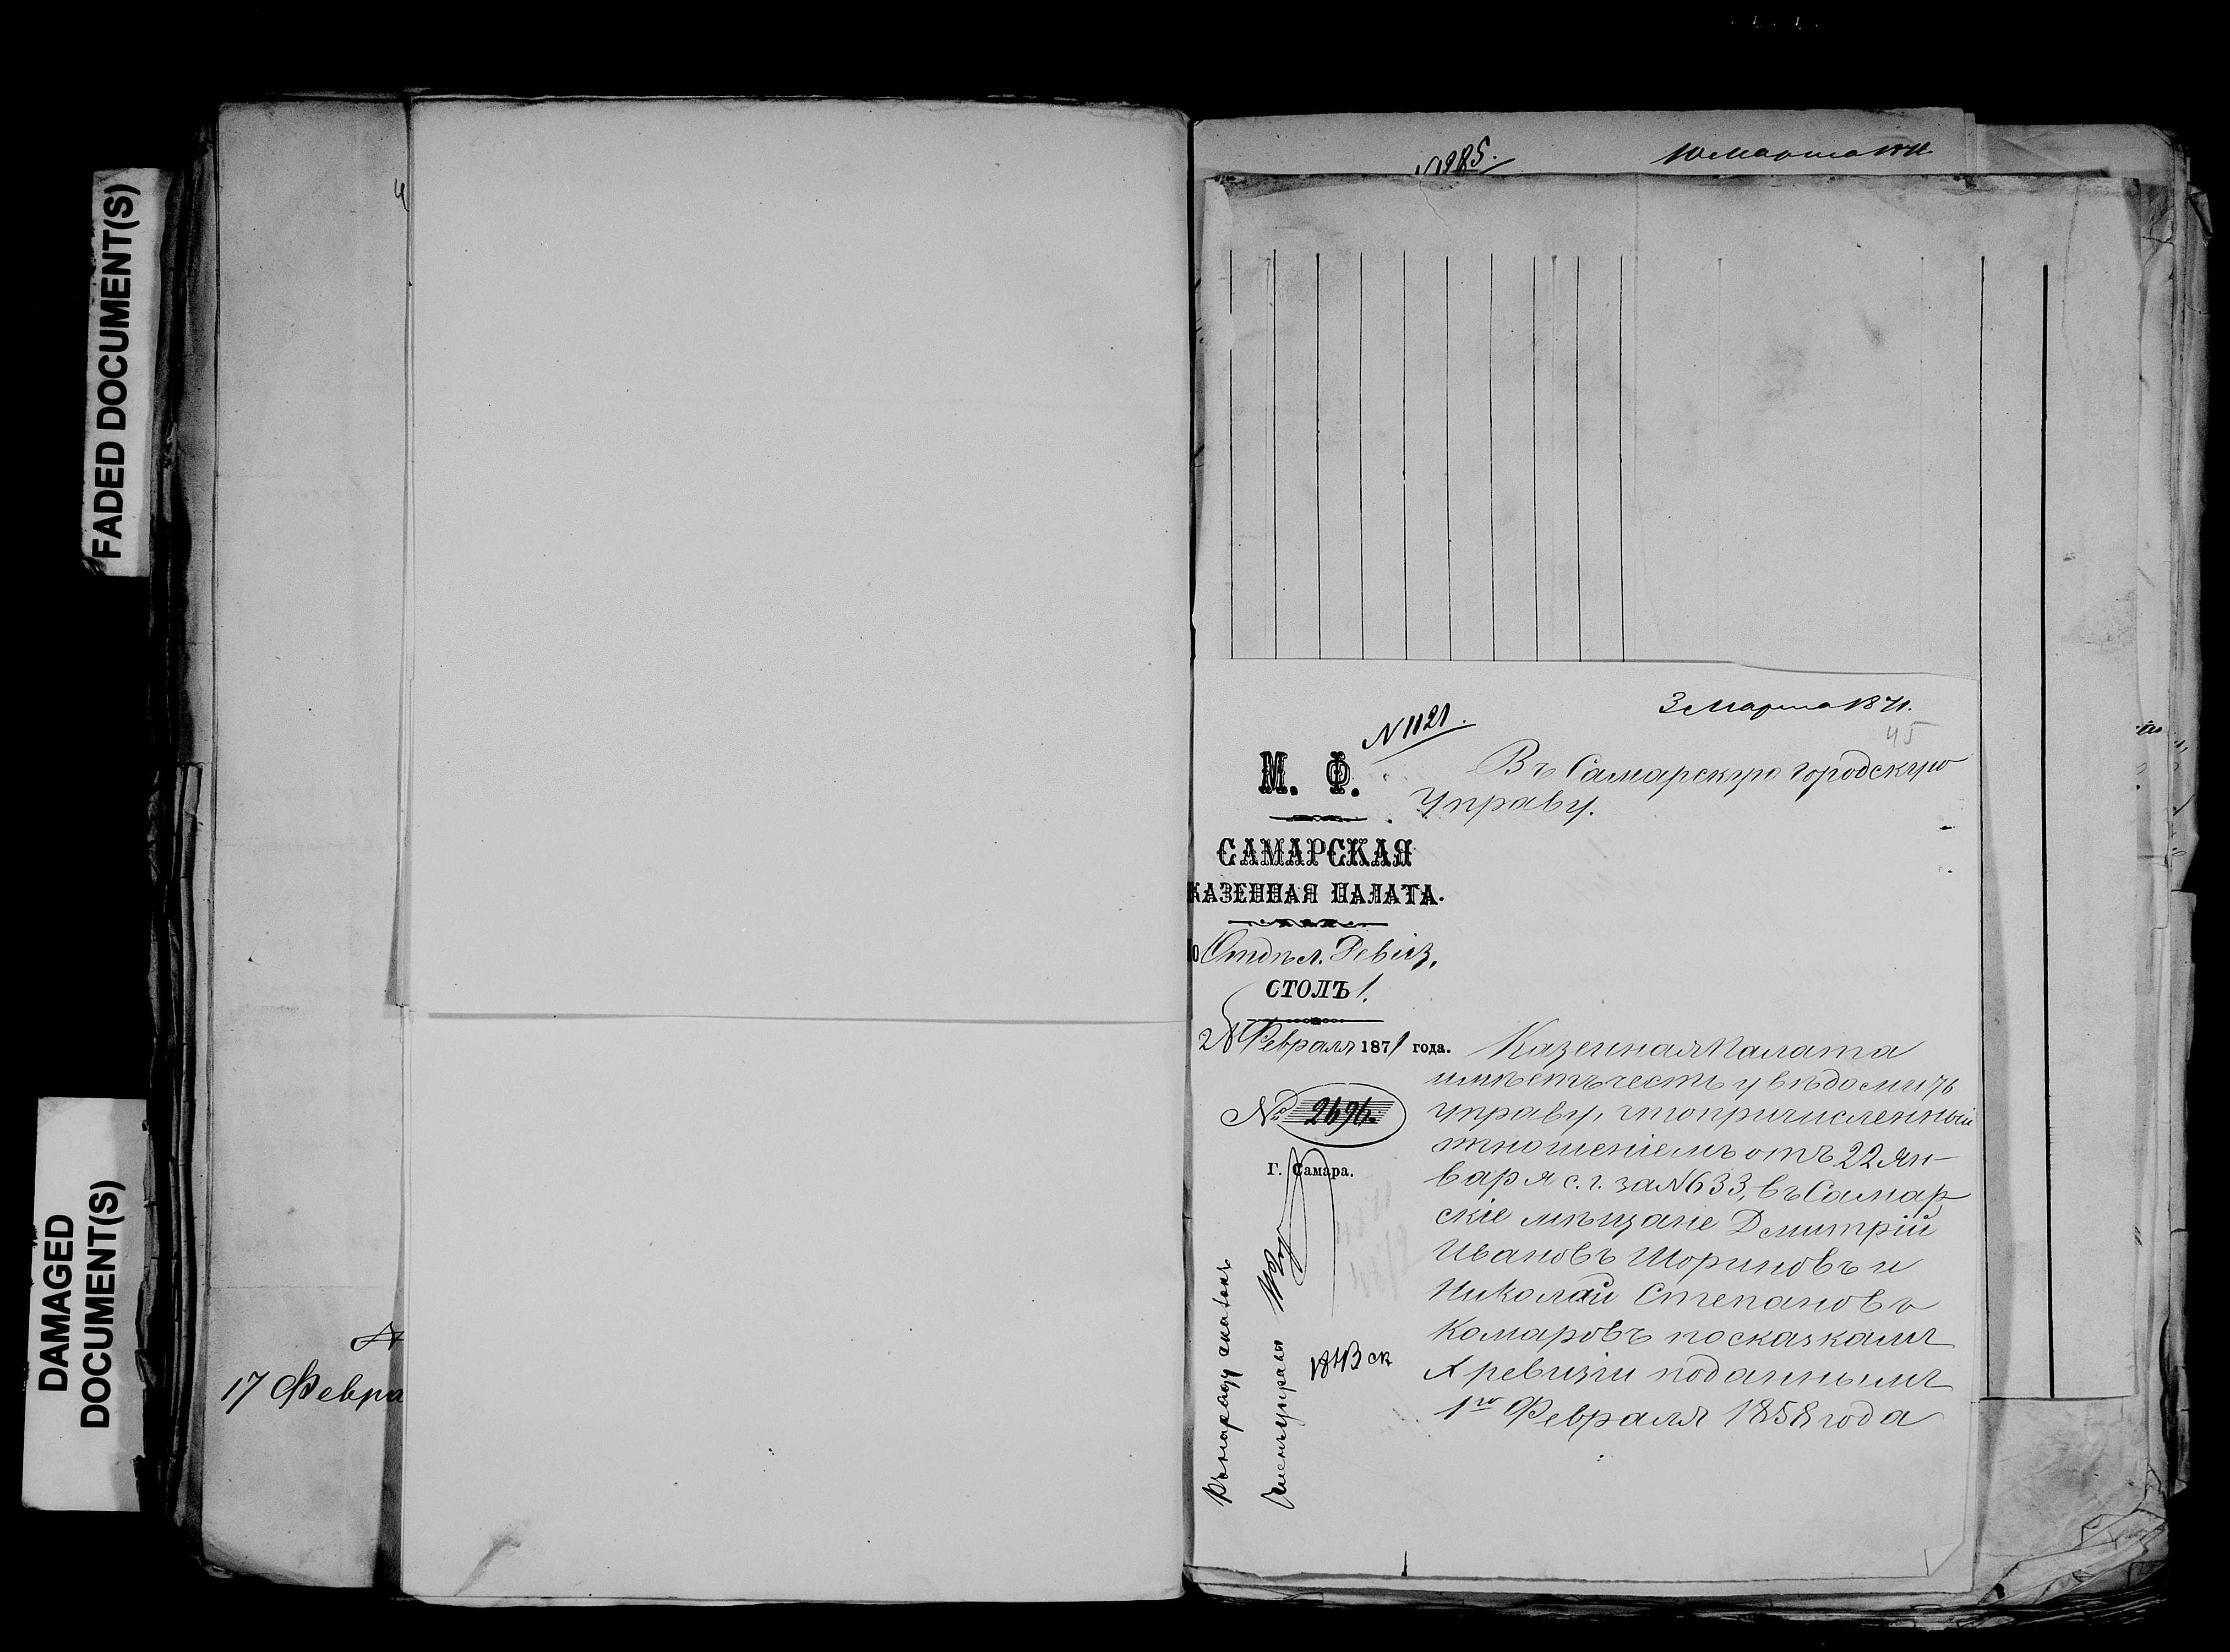 FADED DOCUMENT(S)
DAMAGED
DOCUMENT(S)
17 Февра
10 Марта 1871
3 Марта 1871.
45
N 1121.
М. Ф.
САМАРСКАЯ
КАЗЕННАЯ ПАЛАТА.
По Отдѣл. Ревиз.
СТОЛЪ 1.
Февраля 1871 года.
№ 2694
Г. Самара.
Въ Самарскую городскую
Управу.
Казенная Палата
имѣетъ честь увѣдомить
управу, что причисленный
отношеніемъ отъ 22 Ян-
варя с. г. за N 633, въ Самар
скіе мѣщане Дмитрій
Ивановъ Шориновъ и
Николай Степановъ
Комаровъ по сказкамъ
X ревизіи поданнымъ
1го Февраля 1858 года